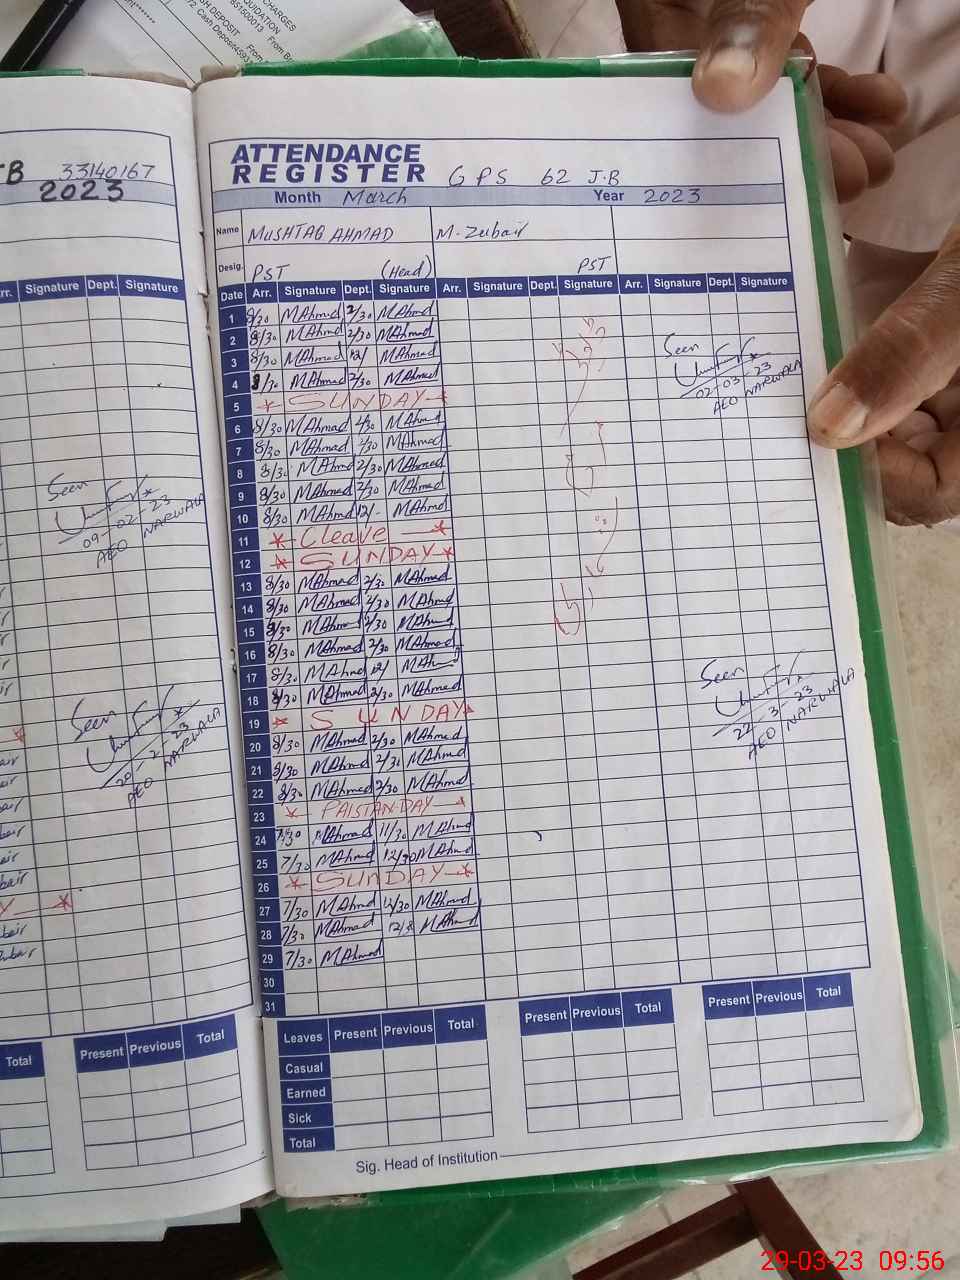 CHARGES
QUIDATION
851500013 From Ba
SH DEPOSIT From
72. Cash Deposit4593
TB 33140167
2023
Arr. Signature Dept. Signature
Seen
09-02-23
AEO NARWALA
Seen
20-2-23
AEO NARWALA
Total Present Previous Total
ATTENDANCE
REGISTER GPS 62 J.B
Month March Year 2023
Name MUSHTAQ AHMAD M. Zubair
Desig. PST (Head) PST
Date Arr. Signature Dept. Signature Arr. Signature Dept. Signature Arr. Signature Dept. Signature
1 8/30 MAhmad 2/30 MAhmad
2 8/30 MAhmad 2/30 MAhmad
3 8/30 MAhmad 12/ MAhmad
4 8/30 MAhmad 2/30 MAhmad
5 SUNDAY
6 8/30 MAhmad 2/30 MAhmad
7 8/30 MAhmad 2/30 MAhmad
8 8/30 MAhmad 2/30 MAhmad
9 8/30 MAhmad 2/30 MAhmad
10 8/30 MAhmad 12/- MAhmad
11 Cleave
12 SUNDAY
13 8/30 MAhmad 2/30 MAhmad
14 8/30 MAhmad 2/30 MAhmad
15 8/30 MAhmad 2/30 MAhmad
16 8/30 MAhmad 2/30 MAhmad
17 8/30 MAhmad 12/ MAhmad
18 8/30 MAhmad 2/30 MAhmad
19 SUNDAY
20 8/30 MAhmad 2/30 MAhmad
21 8/30 MAhmad 2/30 MAhmad
22 8/30 MAhmad 2/30 MAhmad
23 PAISTAN DAY
24 7/30 MAhmad 11/30 MAhmad
25 7/30 MAhmad 12/30 MAhmad
26 SUNDAY
27 7/30 MAhmad 12/30 MAhmad
28 7/30 MAhmad MAhmad
29 7/30 MAhmad
30
31
Seen
02-03-23
AEO NARWALA
Seen
22-3-23
AEO NARWALA
Leaves Present Previous Total Present Previous Total Present Previous Total
Casual
Earned
Sick
Total
Sig. Head of Institution
29-03-23 09:56